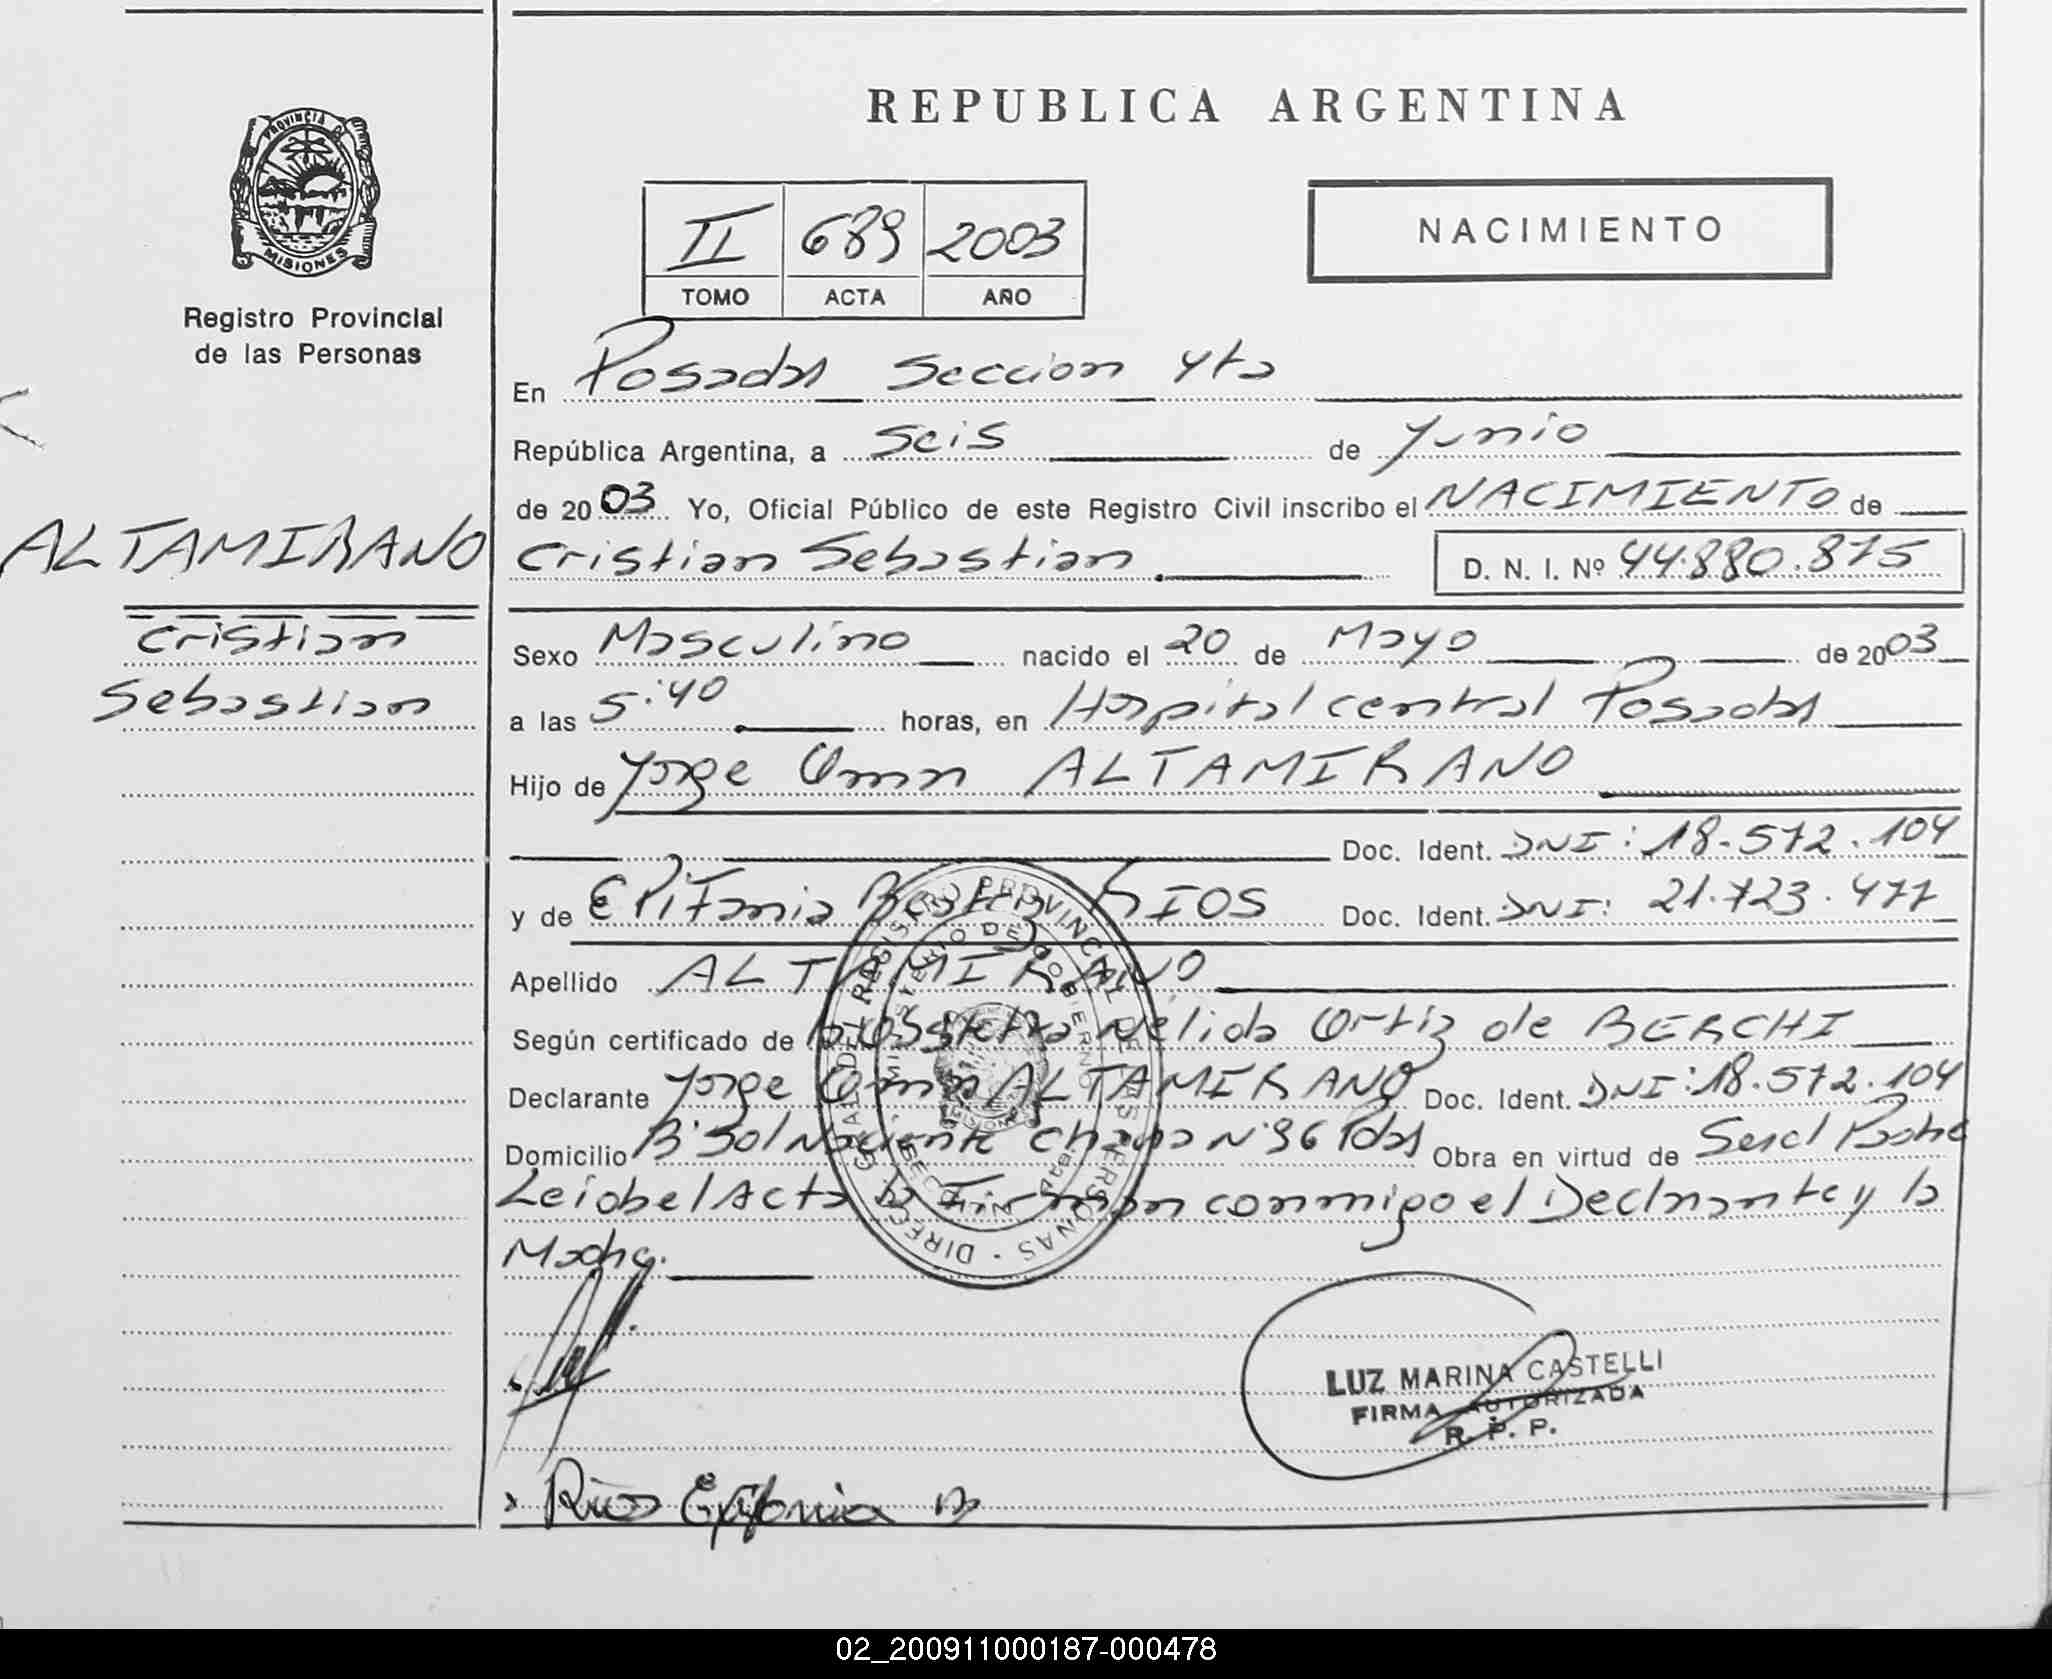 REPUBLICA ARGENTINA
PROVINCIA DE
MISIONES
Registro Provincial
de las Personas
II 689 2003
TOMO ACTA AÑO
NACIMIENTO
En Posadas Seccion 4ta
República Argentina, a Seis de Junio
de 2003 Yo, Oficial Público de este Registro Civil inscribo el NACIMIENTO de
ALTAMIRANO
Cristian Sebastian
Cristian Sebastian D. N. I. Nº 44.880.875
Sexo Masculino nacido el 20 de Mayo de 2003
a las 5:40 horas, en Hospital central Posadas
Hijo de Jorge Omar ALTAMIRANO
Doc. Ident. DNI: 18.572.104
y de EPifania Beatriz RIOS Doc. Ident. DNI: 21.723.477
Apellido ALTAMIRANO
Según certificado de la Obstetra Nélida Ortiz de BERCHI
Declarante Jorge Omar ALTAMIRANO Doc. Ident. DNI: 18.572.104
Domicilio B° Sol Naciente Chacra N°96 Pdas Obra en virtud de Ser el Padre
Leida el Acta la Firman conmigo el Declarante y la
Madre.
DIRECC. GRAL. DEL REGISTRO PROVINCIAL DE LAS PERSONAS
MINISTERIO DE GOBIERNO
LUZ MARINA CASTELLI
FIRMA AUTORIZADA
R. P. P.
x Rios Epifania B
02_200911000187-000478